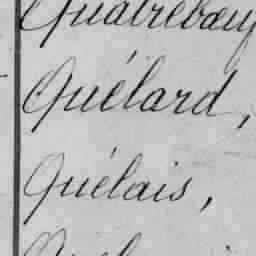 Quatreboeuf
Quélard,
Quélais,